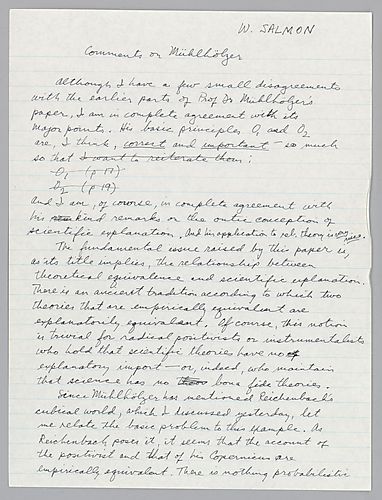 W. SALMON
Comments on Mühlhölzer
Although I have a few small disagreements
with the earlier parts of Prof Dr Mühlhölzer's
paper, I am in complete agreement with its
major points. His basic principles O₁ and O₂
are, I think, correct and important – so much
so that I want to reiterate them:
O₁ (p 17)
O₂ (p 19)
And I am, of course, in complete agreement with
his kind remarks on the ontic conception of
scientific explanation. And his application to rel. theory is very nice.
The fundamental issue raised by this paper is,
as its title implies, the relationship between
theoretical equivalence and scientific explanation.
There is an ancient tradition according to which two
theories that are empirically equivalent are
explanatorily equivalent. Of course, this notion
is trivial for radical positivists or instrumentalists
who hold that scientific theories have no
explanatory import – or, indeed, who maintain
that science has no bona fide theories.
Since Mühlhölzer has mentioned Reichenbach's
cubical world, which I discussed yesterday, let
me relate the basic problem to this example. As
Reichenbach poses it, it seems that the account of
the positivist and that of his Copernicus are
empirically equivalent. There is nothing probabilistic